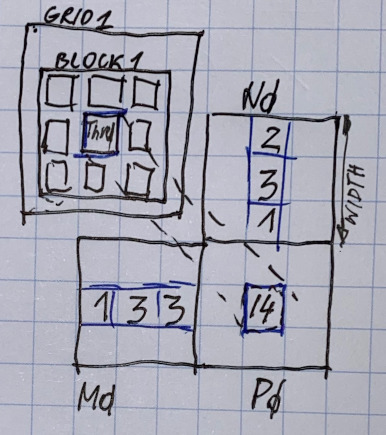 GRID1
BLOCK1
Thrd
Nd
2
3
1
WIDTH
1 3 3
14
Md
Pd